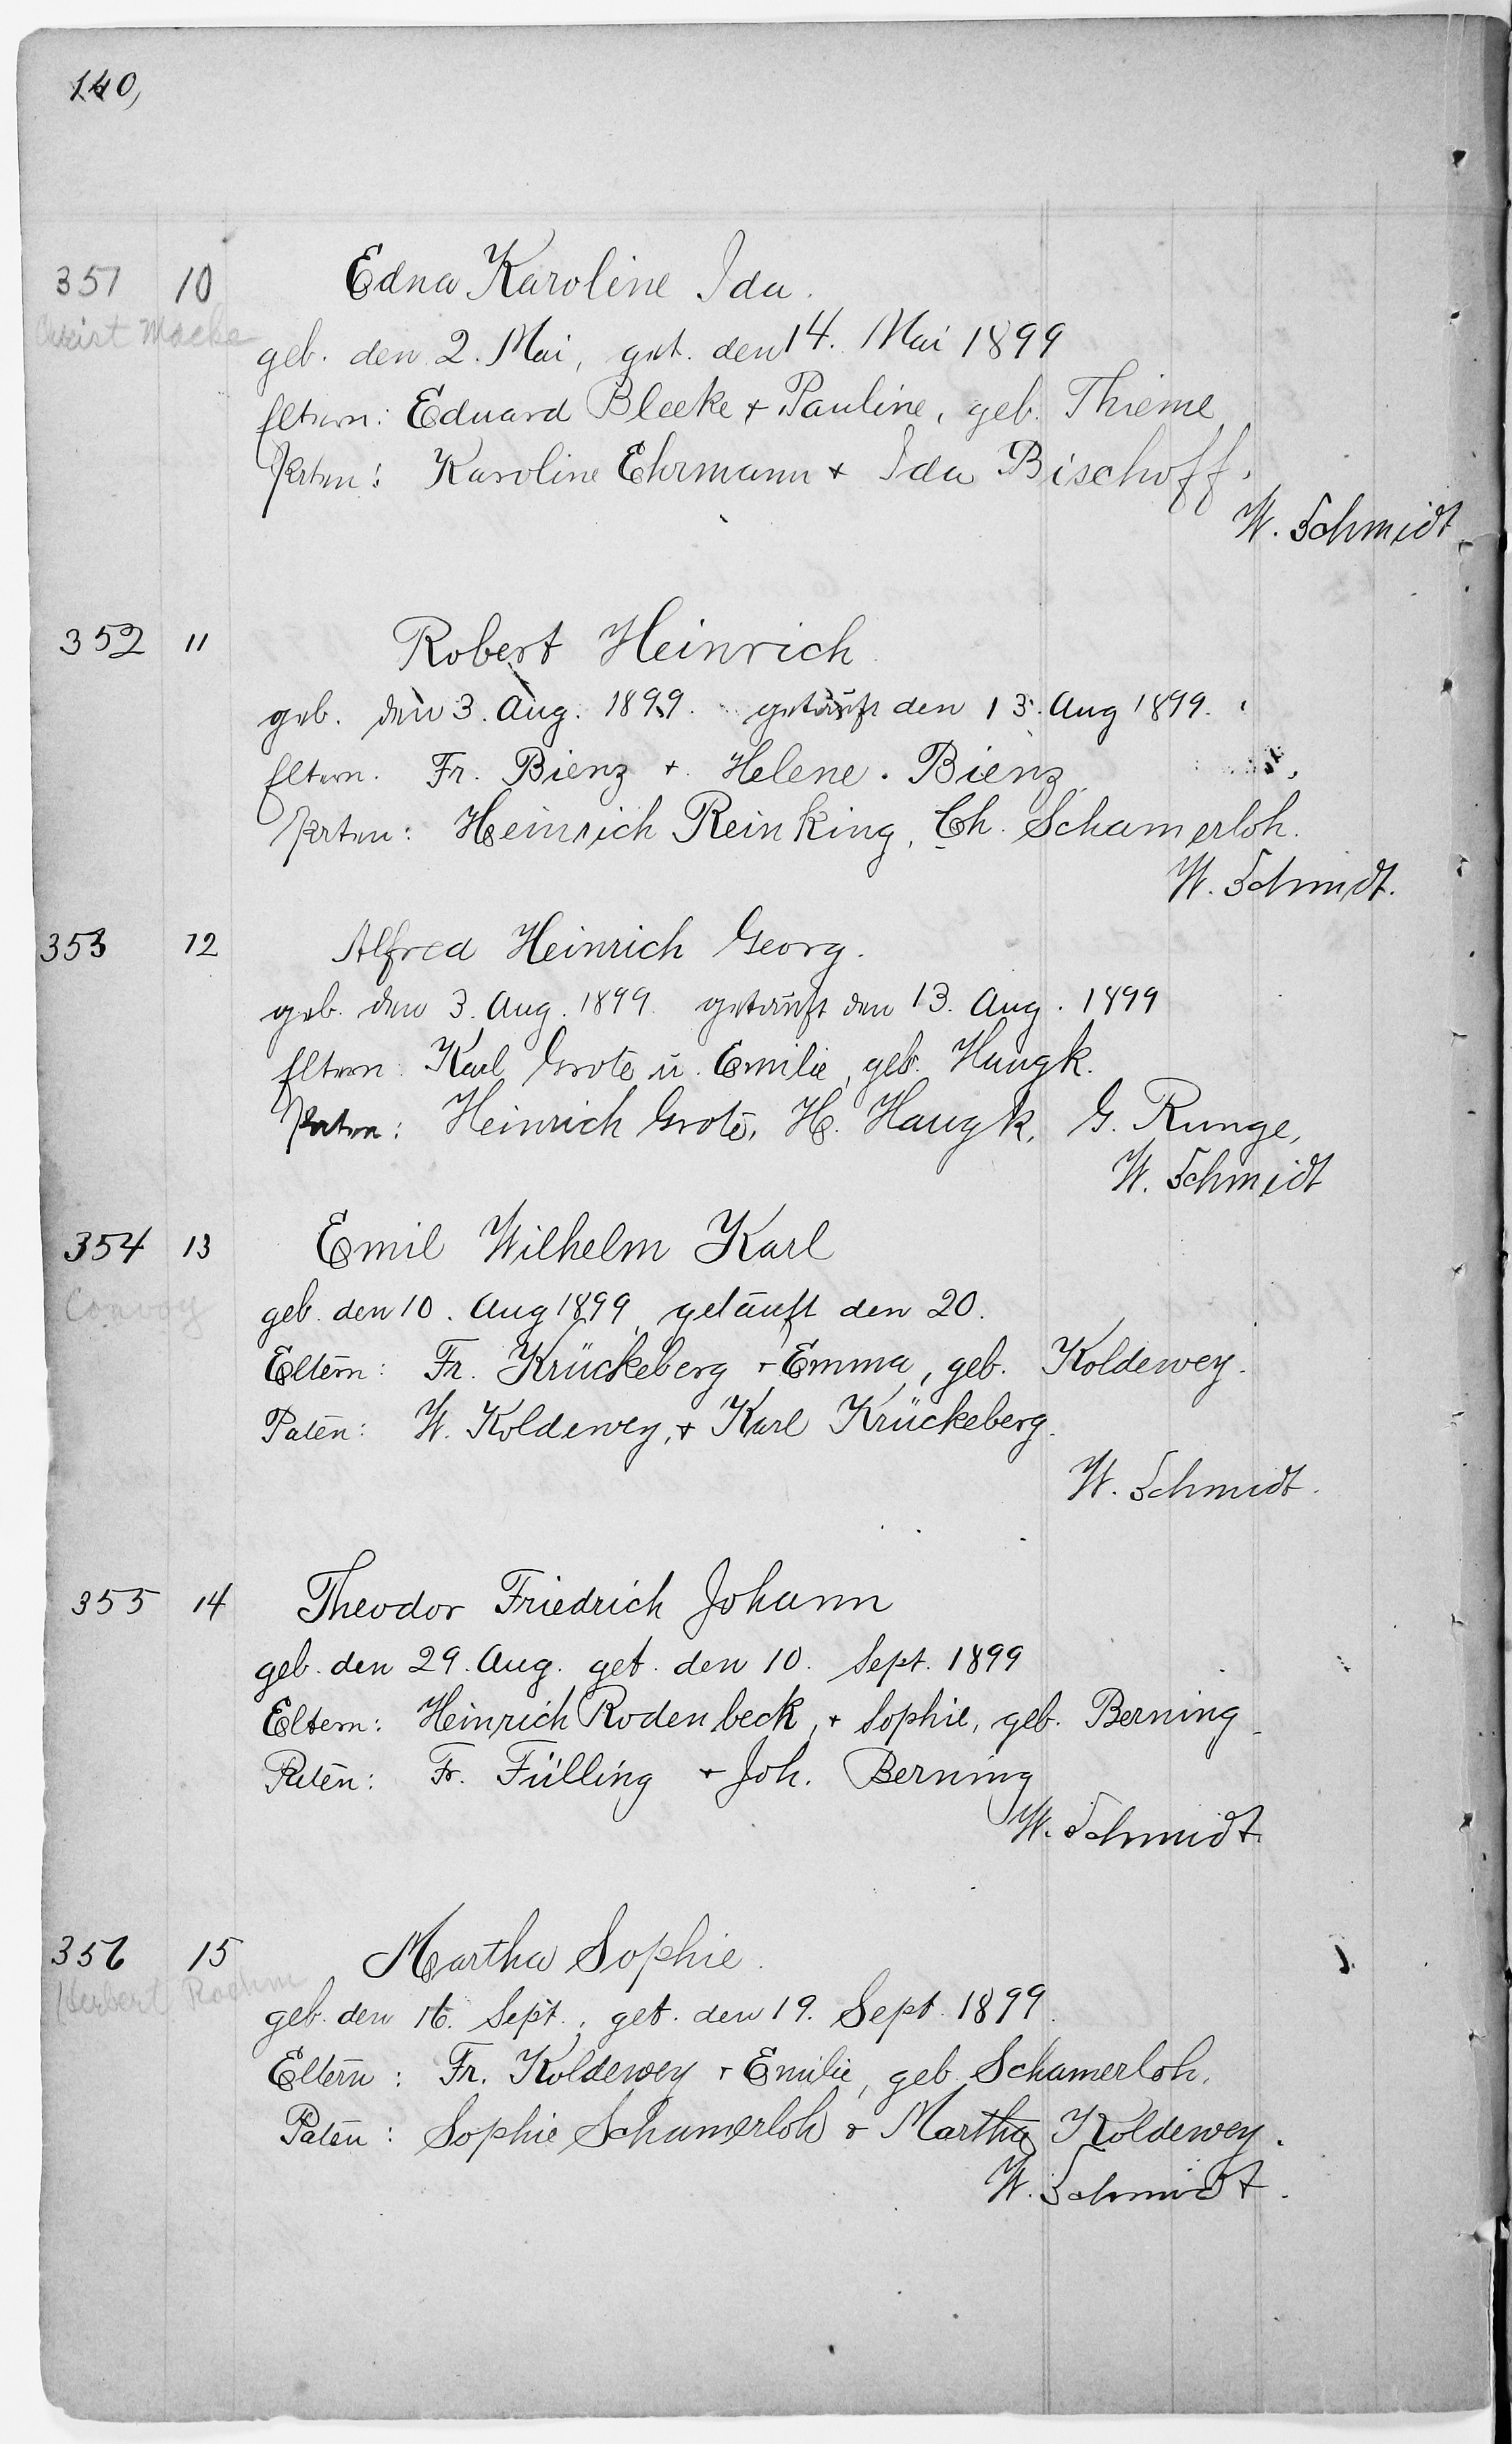 140,
351 10 Edna Karoline Ida.
Christ Macke
geb. den 2. Mai, get. den 14. Mai 1899
Eltern: Eduard Bleeke + Pauline, geb. Thieme
Paten: Karoline Ehrmann + Ida Bischoff.
W. Schmidt
352 11 Robert Heinrich
geb. den 3. Aug. 1899. getauft den 13. Aug 1899.
Eltern. Fr. Bienz + Helene. Bienz
Paten: Heinrich Reinking, Ch. Schamerloh.
W. Schmidt.
353 12 Alfred Heinrich Georg.
geb. den 3. Aug. 1899 getauft den 13. Aug. 1899
Eltern: Karl Grote u. Emilie, geb. Haugk.
Paten: Heinrich Grote, H. Haugk, G. Runge,
W. Schmidt
354 13 Emil Wilhelm Karl
Convoy
geb. den 10. Aug 1899, getauft den 20.
Eltern: Fr. Krückeberg + Emma, geb. Koldewey.
Paten: W. Koldewey, + Karl Krückeberg.
W. Schmidt.
355 14 Theodor Friedrich Johann
geb. den 29. Aug. get. den 10. Sept. 1899
Eltern: Heinrich Rodenbeck, + Sophie, geb. Berning
Paten: Fr. Fülling + Joh. Berning
W. Schmidt.
356 15 Martha Sophie.
Herbert Roehm
geb. den 16. Sept., get. den 19. Sept. 1899.
Eltern: Fr. Koldewey + Emilie, geb. Schamerloh.
Paten: Sophie Schamerloh + Martha Koldewey.
W. Schmidt.